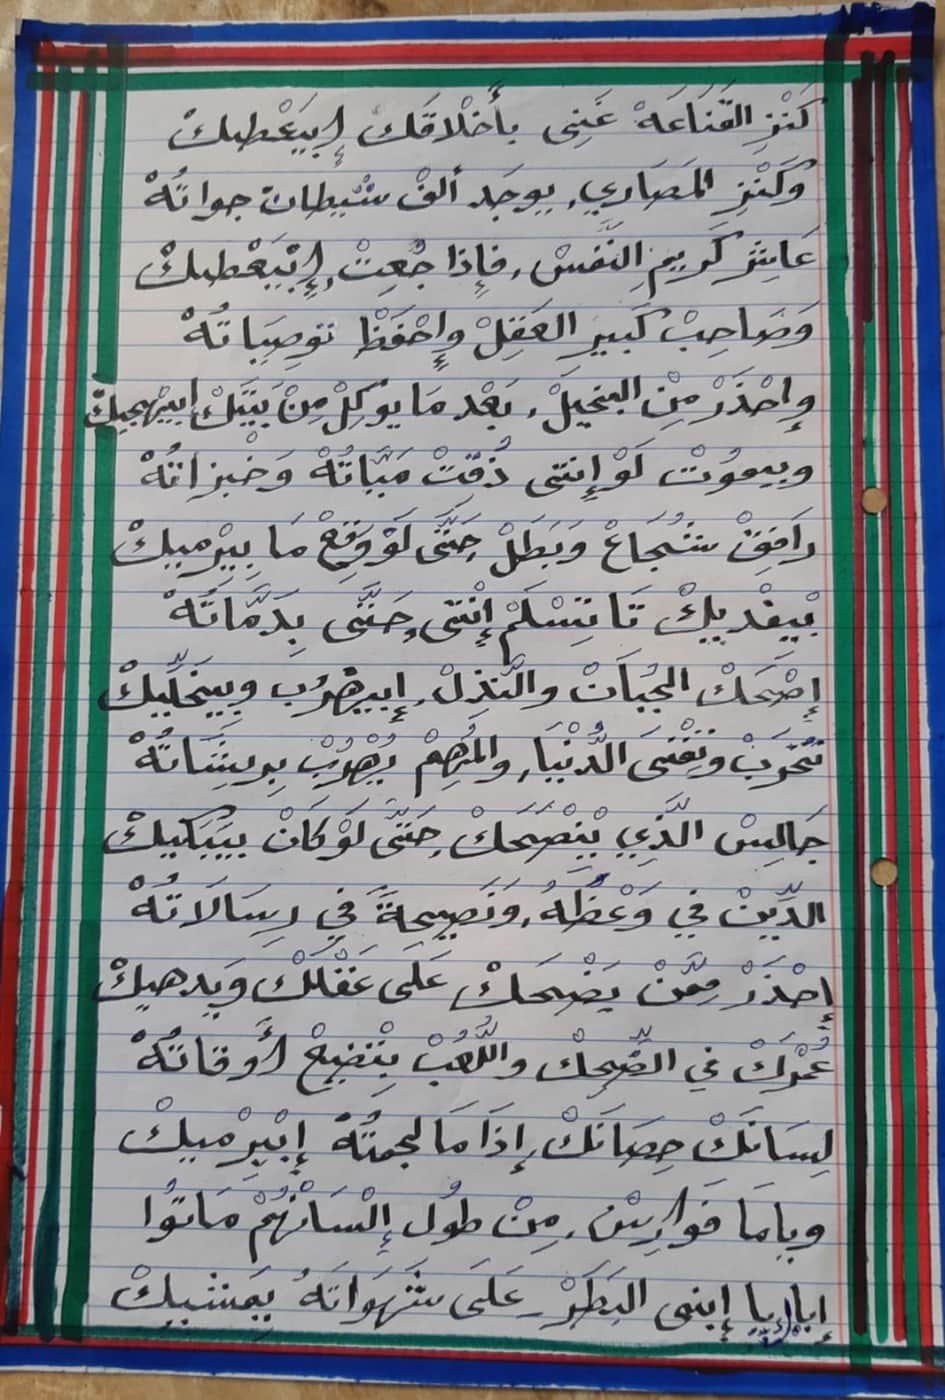 كَنْزِ القَنَاعَهْ غَنِى بأَخْلَاقَكْ إِبَيَعْطِيكْ
وَكَنْزِ المَصَارِي، بيوجَد ألفْ شْيِطانْ جواتُهْ
عَاشِرْ كَرِيمِ النَّفِسْ، فَإِذا جُعِتْ، إِبْيَعْطِيكْ
وَصَاحِبْ كَبِيرِ العَقِلْ وِإِحْفَظْ توصِيَاتُهْ
وإِحْذَرْ مِنْ البخيلْ، بَعْد مَا يوكِلْ مِنْ بَيتَكْ، إِبيِهْجِيكْ
وبيموُتْ لَوْ إِنتى ذُقِتْ مَيَّاتُهْ وَخبْزاتُهْ
رَافِقْ شُجَاعْ وَبَطَلْ حَتَّى لَوْ وَقِعْ مَا بِيِرْمِيكْ
بْيِفْدِيكْ تَا تِسْلَمْ إِنْتى، حَتَّى بِدَمَّاتَهْ
إِصْحَكْ الجُبَانْ والنَّذِلْ، إِبيِهْرُب وبِيخَلِّيكْ
تُخْرَبْ وتِفْنَى الدُّنْيَا، والمُهِمْ يُهْرُبْ بِريشَاتُهْ
جَالِسْ الَّذِي يْنِصَحَكْ حَتَّى لَوْ كَانْ بيَبْكِيكْ
الدِّينْ في وَعْظُهُ، وَنَصِيحةً في رِسَالَاتُهْ
إِحْذَرْ مِمَّنْ يَضْحَكْ عَلَى عَقْلَكْ وَيِدهِيكْ
عُمْرَكْ في الضِّحِكْ واللُّعُبْ بِتْضِيعْ أَوقاتُهْ
لِسَانَكْ حِصَانَكْ، إِذَا مَا لجمتُهْ إِبْيِرْمِيكْ
وياما فَوارِسْ، مِنْ طوُل إِلْسَانْهُمْ مَاتُوا
إِيا إِيا إِبنى البَطَرْ، عَلَى شَهَوَاتَهُ يِمَشِيكْ